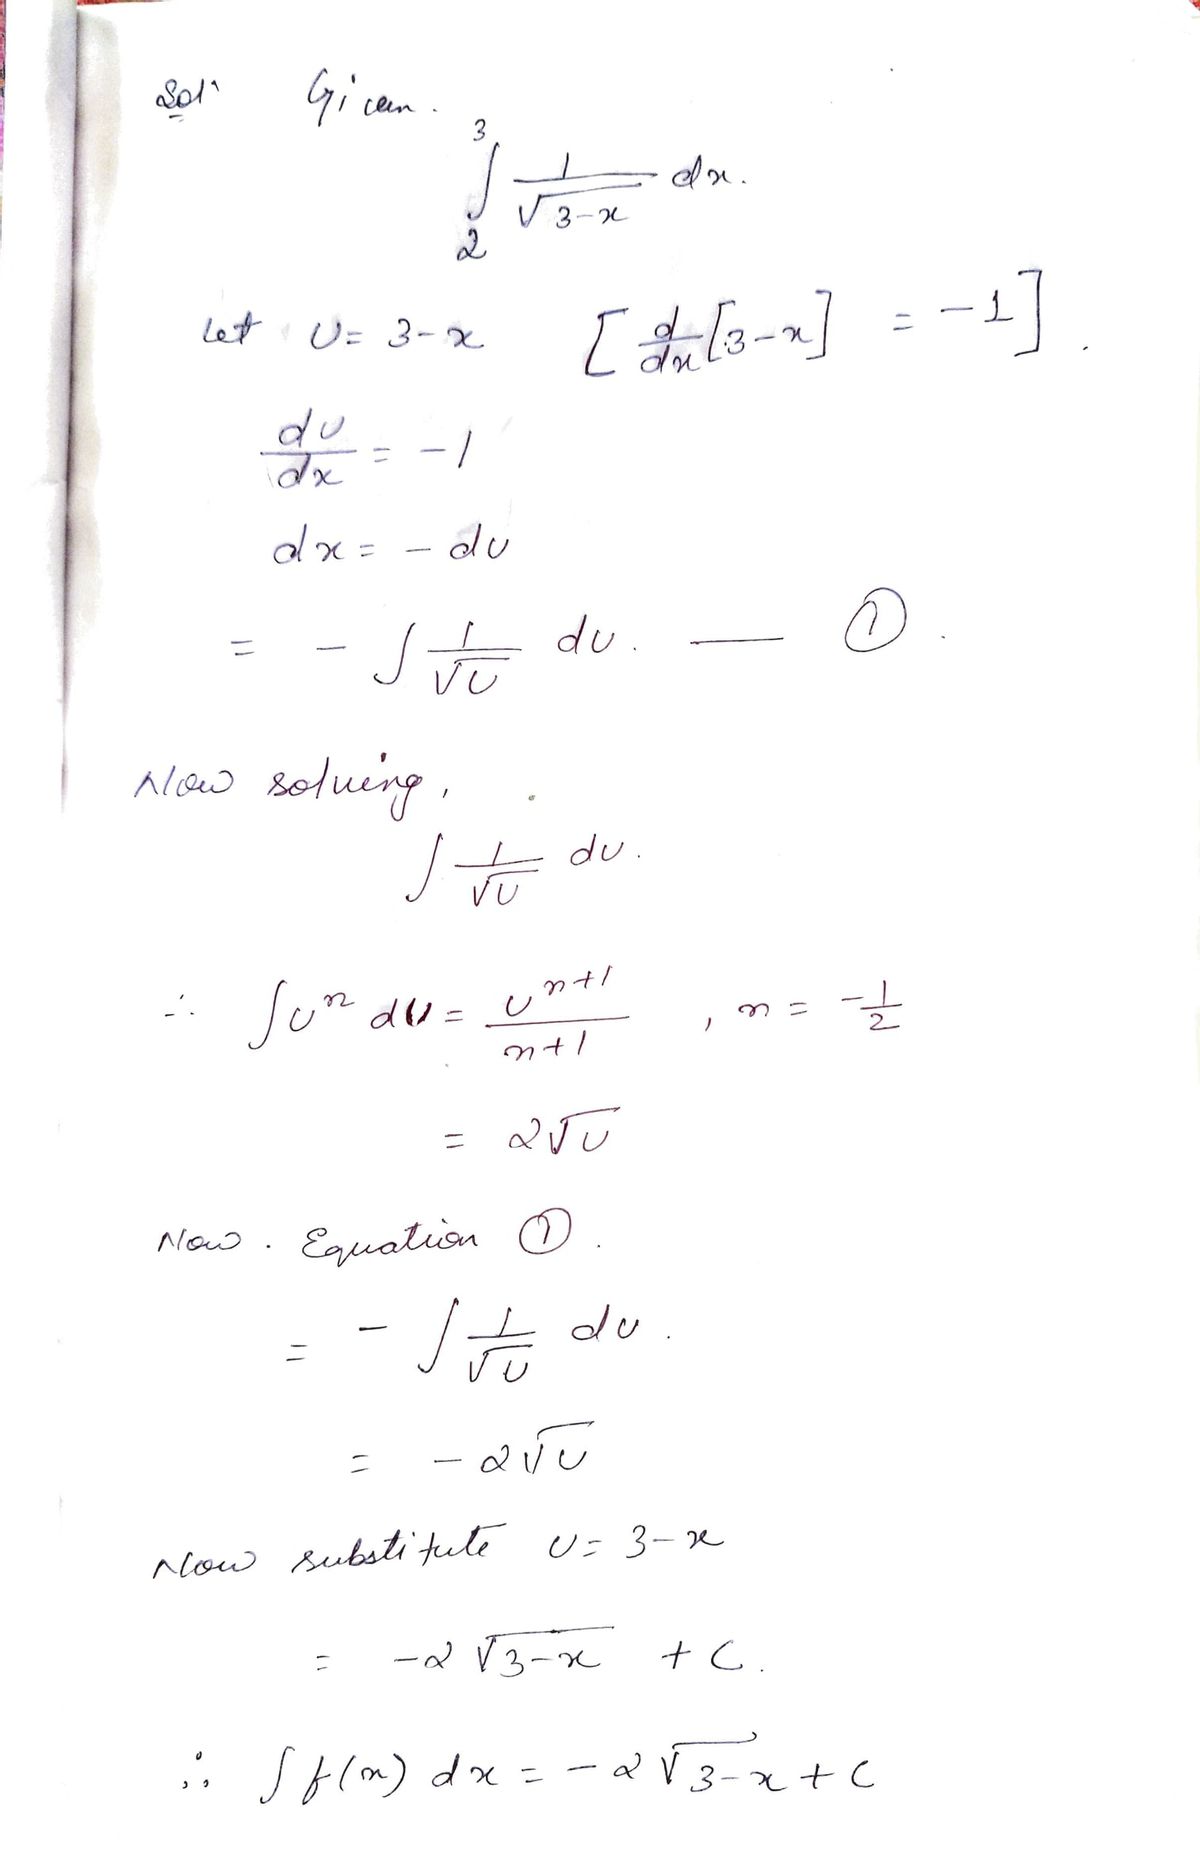 Solⁿ Given.
∫₂³ 1/√(3-x) dx.
Let U = 3-x [d/dx[3-x] = -1].
du/dx = -1
dx = - du
= - ∫ 1/√U du. — ①.
Now solving,
∫ 1/√U du.
∴ ∫uⁿ du = u^(n+1)/(n+1) , n = -1/2
= 2√U
Now. Equation ①.
= - ∫ 1/√U du.
= -2√U
Now substitute U = 3-x
= -2√(3-x) + C.
∴ ∫f(x) dx = -2√(3-x) + C